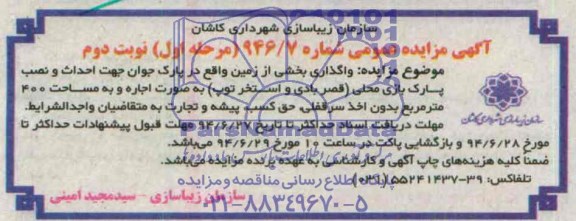 سازمان زیباسازی شهرداری کاشان
آگهی مزایده عمومی شماره ۹۴۶/۷ (مرحله اول) نوبت دوم
موضوع مزایده: واگذاری بخشی از زمین واقع در پارک جوان جهت احداث و نصب
پـارک بازی محلی (قصر بادی و اسـتخر توپ) به صورت اجاره و به مسـاحت ۴۰۰
مترمربع بدون اخذ سرقفلی، حق کسب پیشه و تجارت به متقاضیان واجدالشرایط.
مهلت دریافت اسناد حداکثر تا تاریخ مهلت قبول پیشنهادات حداکثر تا
مورخ ۹۴/۶/۲۸ و بازگشایی پاکت در ساعت ۱۰ مورخ ۹۴/۶/۲۹ می‌باشد.
ضمناً کلیه هزینه‌های چاپ آگهی و کارشناسی به عهده برنده مزایده می‌باشد.
تلفاکس: ۳۹-۵۵۲۴۱۴۳۷ (۰۳۱)
پایگاه اطلاع رسانی مناقصه و مزایده
سازمان زیباسازی - سیدمجید امینی
۰۲۱-۸۸۳۴۹۶۷۰-۵
ParsNamadData